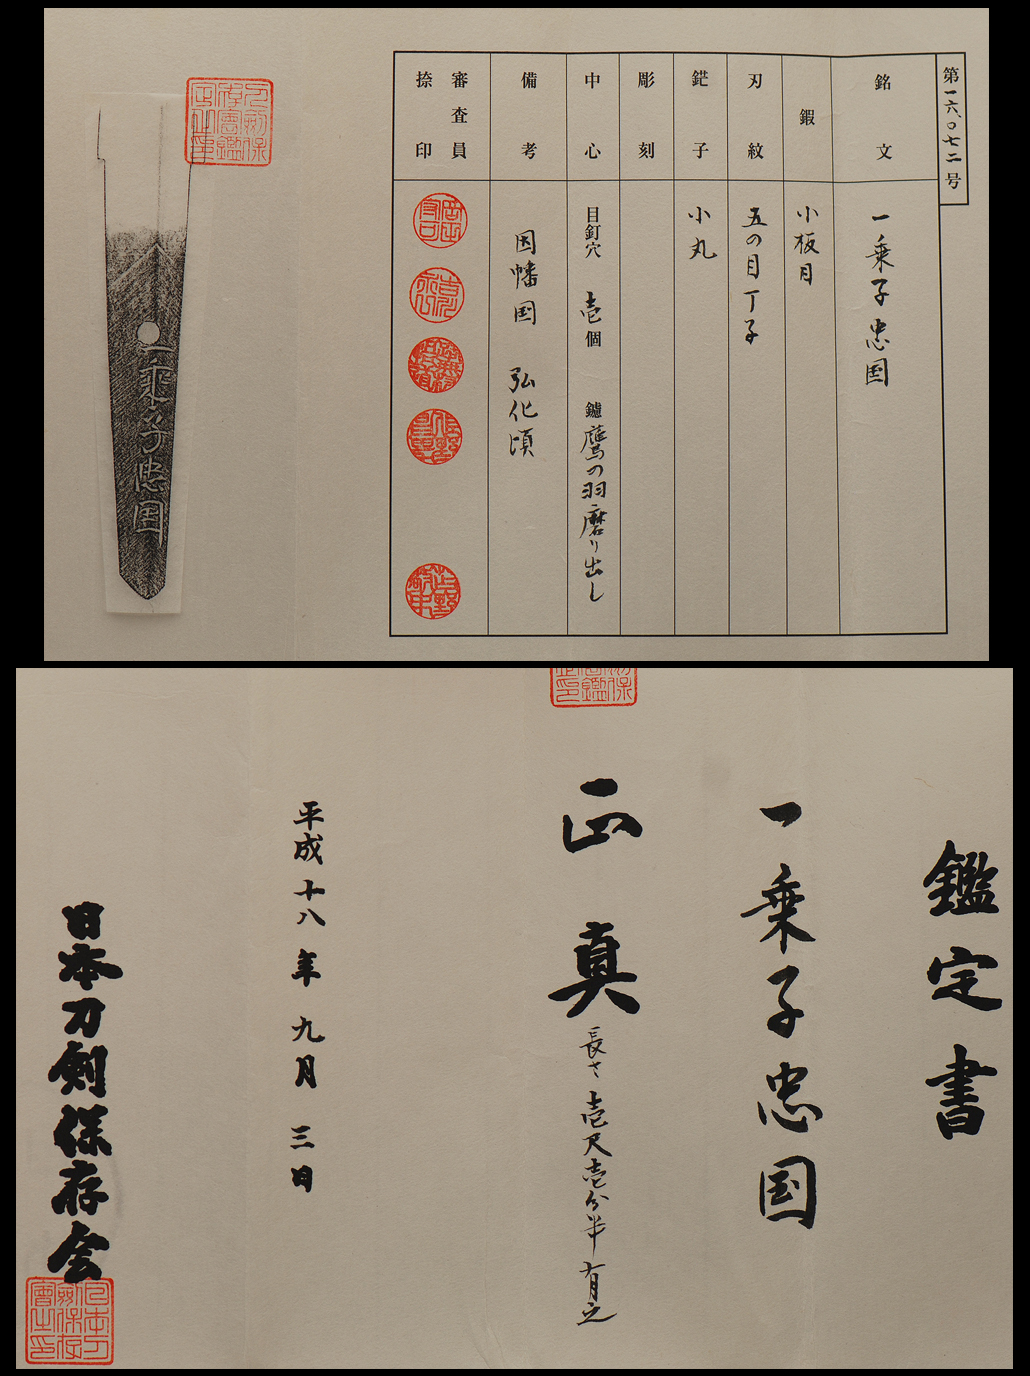 第一六〇七二号
銘文
一乗子忠国
鍜
小板目
刃紋
五の目丁子
鋩子
小丸
彫刻
中心
目釘穴 壱個 鑢 鷹の羽磨り出し
備考
因幡国 弘化頃
審査員
捺印
一乗子忠国
鑑定書
一乗子忠国
正真
長さ 壱尺壱分半 有之
平成十八年九月三日
日本刀剣保存会